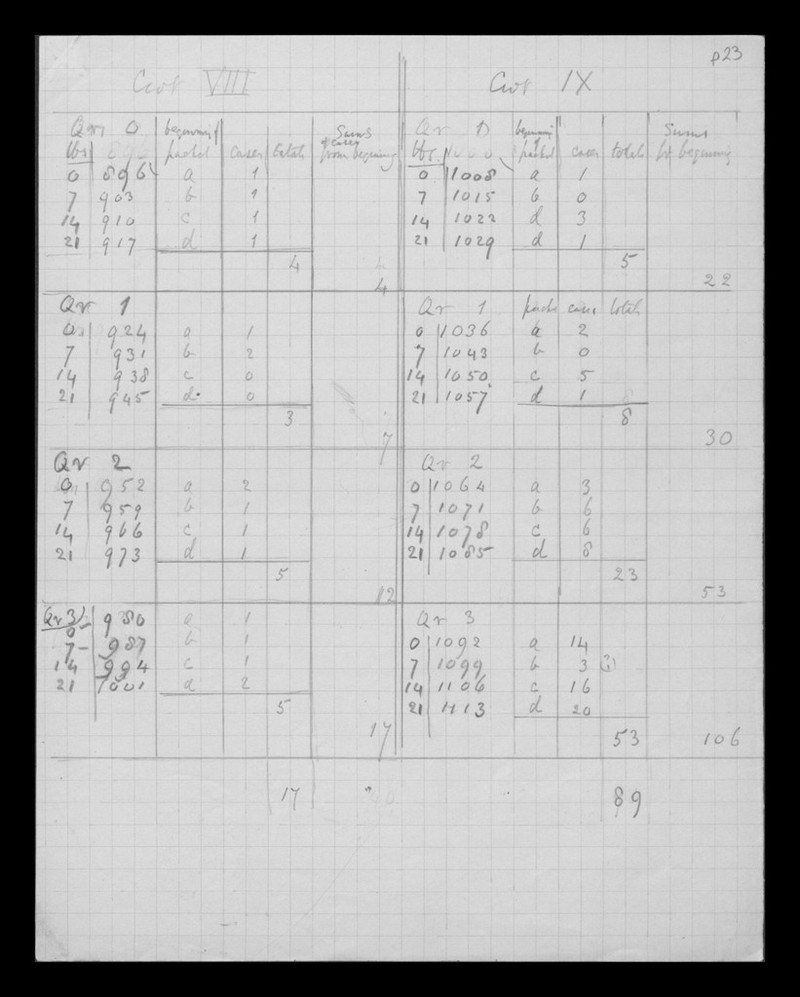 p23
Cwt VIII
Qr 0 beginning of Sums
lbs 896 parcel cases totals of cases from beginning
0 896 a 1
7 903 b 1
14 910 c 1
21 917 d 1
4
4
Qr 1
0 924 a 1
7 931 b 2
14 938 c 0
21 945 d. 0
3
7
Qr 2
0 952 a 2
7 959 b 1
14 966 c 1
21 973 d 1
5
12
Qr 3
0 980 a 1
7 987 b 1
14 994 c 1
21 1001 d 2
5
17
17
Cwt IX
Qr 0 beginning of Sums
lbs parcel cases totals fr beginning
0 1008 a 1
7 1015 b 0
14 1022 d 3
21 1029 d 1
5
22
Qr 1 parcel cases totals
0 1036 a 2
7 1043 b 0
14 1050 c 5
21 1057 d 1
8
30
Qr 2
0 1064 a 3
7 1071 b 6
14 1078 c 6
21 1085 d 8
23
53
Qr 3
0 1092 a 14
7 1099 b 3 (?)
14 1106 c 16
21 1113 d 20
53
106
89